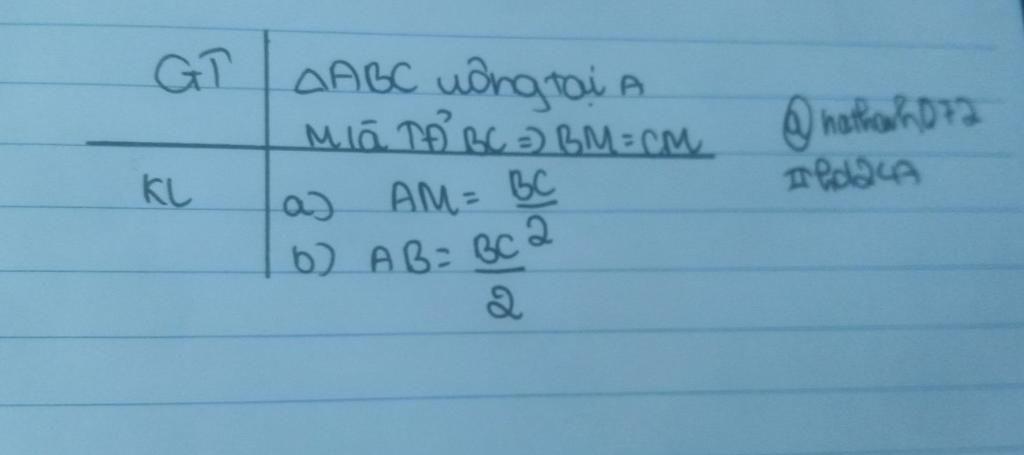 GT ΔABC uông tại A
M là TĐ BC => BM = CM
KL a) AM = BC/2
b) AB = BC/2